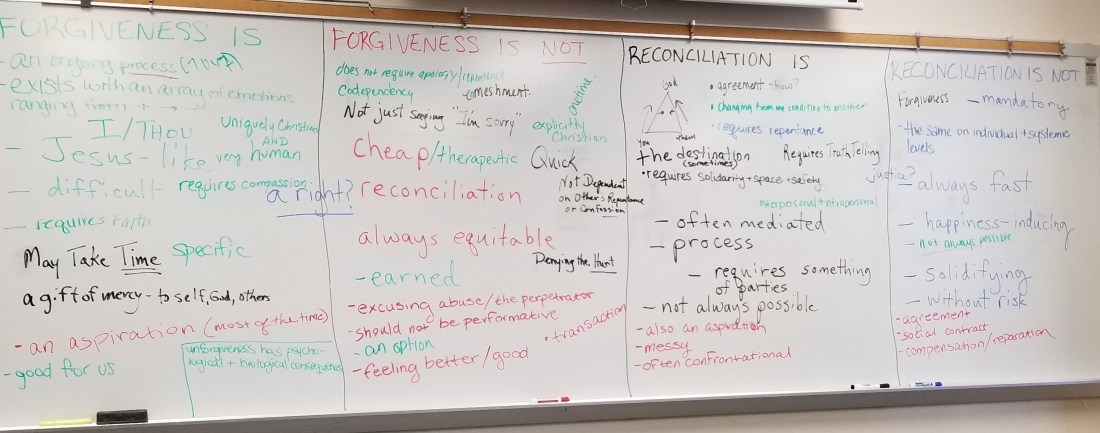 FORGIVENESS IS
- an ongoing process (70x7)
- exists with an array of emotions
ranging from + → -
I/THOU
Uniquely Christian
AND
very human
- Jesus-like
- difficult
requires compassion
a right?
- requires faith
May Take Time
specific
a gift of mercy - to self, God, others
- an aspiration (most of the time)
- good for us
unforgiveness has psycho-
logical + biological consequences
FORGIVENESS IS NOT
does not require apology/repentance
Codependency
- enmeshment
Not just saying "I'm sorry"
routine
explicitly
Christian
Cheap/therapeutic
Quick
reconciliation
Not Dependent
on Other's Repentance
or Confession
always equitable
Denying the Hurt
- earned
- excusing abuse/the perpetrator
- should not be performative
• transaction
- an option
- feeling better/good
RECONCILIATION IS
God
You
them
• agreement - how?
• changing from one condition to another
• requires repentance
the destination
(sometimes)
Requires Truth Telling
• requires solidarity + space + safety
justice?
interpersonal + intrapersonal
- often mediated
- process
- requires something
of parties
- not always possible
- also an aspiration
- messy
- often confrontational
RECONCILIATION IS NOT
Forgiveness
- mandatory
- the same on individual + systemic
levels
- always fast
- happiness-inducing
- not always possible
- solidifying
- without risk
- agreement
- social contract
- compensation/reparation